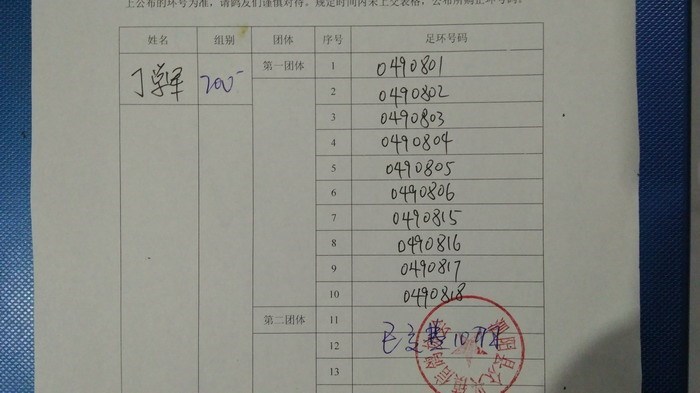 上公布的环号为准,请鸽友们谨慎对待。规定时间内未上交表格,公布所购正环号码。
姓名 组别 团体 序号 足环号码
丁学军 200 第一团体 1 0490801
2 0490802
3 0490803
4 0490804
5 0490805
6 0490806
7 0490815
8 0490816
9 0490817
10 0490818
第二团体 11
已交费10
12
13